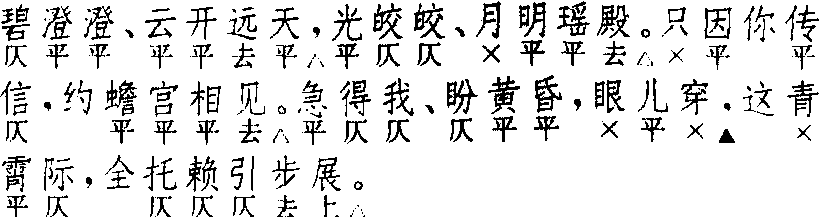 碧澄澄、云开远天，光皎皎、月明瑶殿。只因你传
仄平平 平平去平△平仄仄 ×平平去△×平 平
信，约蟾宫相见。急得我、盼黄昏，眼儿穿，这青
仄 平平平去△平仄仄 仄平平 ×平×▲ ×
霄际，全托赖引步展。
平仄 仄仄仄去上△